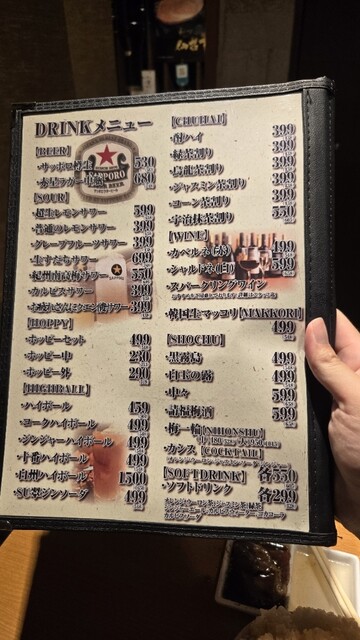 DRINKメニュー
[BEER]
・サッポロ樽生 530
・赤星ラガー中瓶 680
[SOUR]
・超生レモンサワー 599
・普通のレモンサワー 399
・グレープフルーツサワー 399
・生すだちサワー 699
・紀州南高梅サワー 550
・カルピスサワー 399
・お疲れさんにクエン酸サワー 399
[HOPPY]
・ホッピーセット 499
・ホッピー中 230
・ホッピー外 290
[HIGHBALL]
・ハイボール 459
・コークハイボール 499
・ジンジャーハイボール 499
・十番ハイボール 499
・白州ハイボール 1500
・SUI翠ジンソーダ 499
[CHUHAI]
・酎ハイ 399
・緑茶割り 399
・烏龍茶割り 399
・ジャスミン茶割り 399
・コーン茶割り 399
・宇治抹茶割り 550
[WINE]
・カベルネ(赤) 499
・シャルドネ(白) 599
・スパークリングワイン
・韓国生マッコリ[MAKKORI]
499
[SHOCHU]
・黒霧島 499
・白玉の露 499
・中々 599
・請福梅酒 599
・梅一輪[NIHONSHU]
・カシス [COCKTAIL]
各550
[SOFTDRINK]
・ソフトドリンク 各299